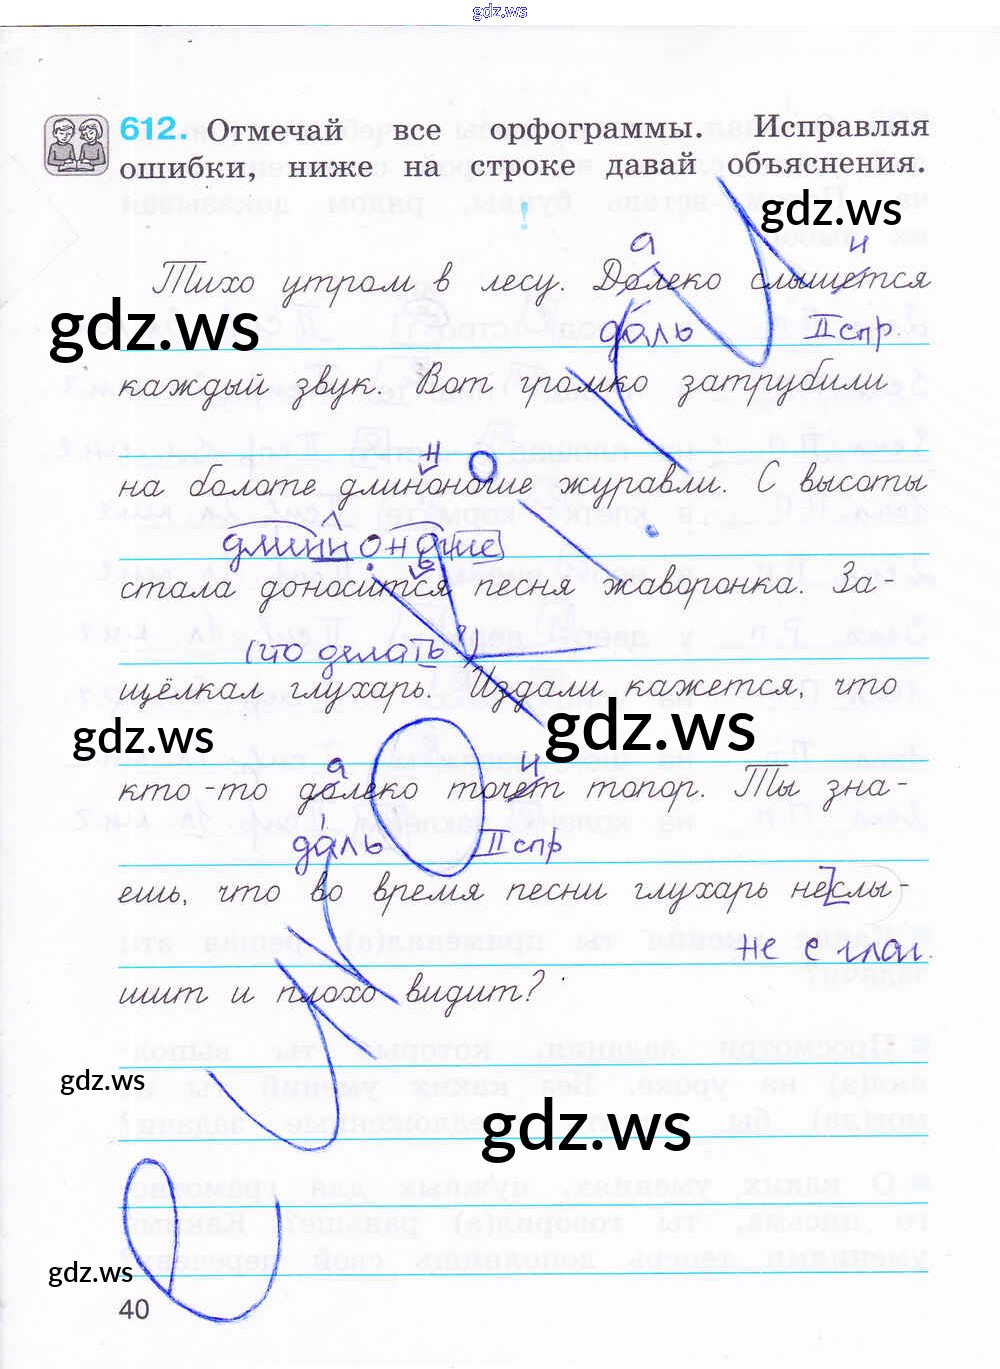 gdz.ws
612. Отмечай все орфограммы. Исправляя
ошибки, ниже на строке давай объяснения.
gdz.ws
!
а и
Тихо утром в лесу. Долеко слыщется
gdz.ws
даль II спр.
каждый звук. Вот громко затрубили
н
на болоте длиноногие журавли. С высоты
длинноногие
ь
стала доносится песня жаворонка. За-
(что делать?)
щёлкал глухарь. Издали кажется, что
gdz.ws gdz.ws
а и
кто-то долеко точет топор. Ты зна-
даль II спр
ешь, что во время песни глухарь неслы-
не с глаг.
шит и плохо видит?
gdz.ws
gdz.ws
gdz.ws
40